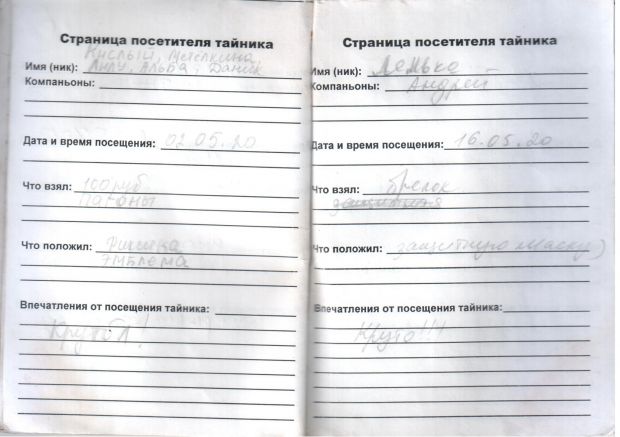 Страница посетителя тайника
Кислый, Метёлкина
Имя (ник): Лилу, Альба, Даник
Компаньоны:
Дата и время посещения: 02.05.20
Что взял: 100 руб
Погоны
Что положил: Фишка
Эмблема
Впечатления от посещения тайника:
Круто!
Страница посетителя тайника
Имя (ник): Лемько
Компаньоны: Андрей
Дата и время посещения: 16.05.20
Что взял: брелок
Что положил: защитную маску)
Впечатления от посещения тайника:
Круто!!!